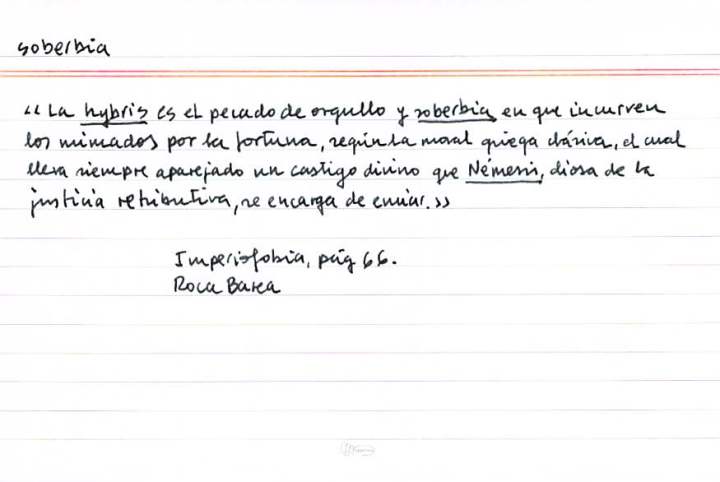 soberbia
“La hybris es el pecado de orgullo y soberbia en que incurren
los mimados por la fortuna, según la moral griega clásica, el cual
lleva siempre aparejado un castigo divino que Némesis, diosa de la
justicia retributiva, se encarga de enviar.”
Imperiofobia, pág 66.
Roca Barea